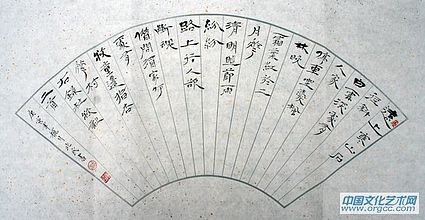 遠上寒山石
徑斜
白雲深處有
人家
停車坐愛楓
林晚
霜葉紅於二
月花
清明時節雨
紛紛
路上行人欲
斷魂
借問酒家何
處有
牧童遙指杏
花村
右錄杜牧詩
二首
中国文化艺术网
www.orgcc.com